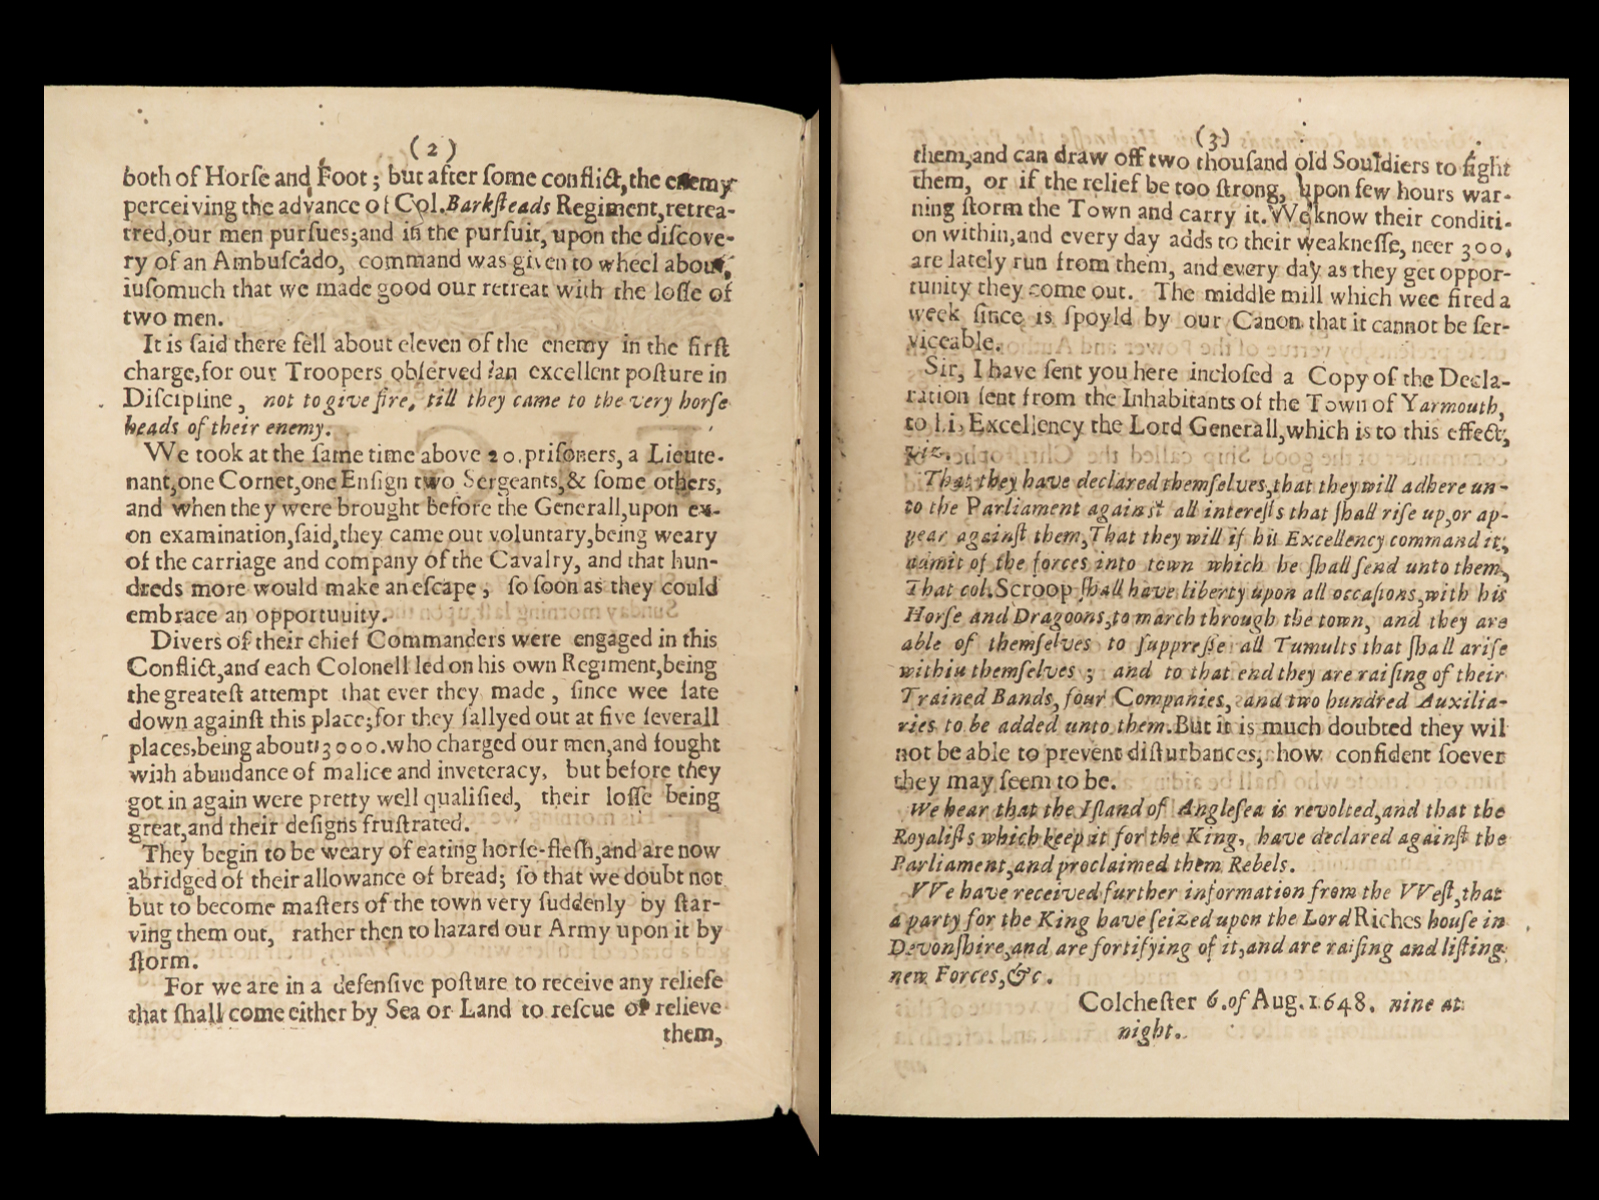 (2)
both of Horſe and Foot; but after ſome conflict, the enemy
perceiving the advance of Col. Barkſteads Regiment, retrea-
tred, our men purſues; and in the purſuit, upon the diſcove-
ry of an Ambuſcado, command was given to wheel about,
iuſomuch that we made good our retreat with the loſſe of
two men.
It is ſaid there fell about eleven of the enemy in the firſt
charge, for our Troopers obſerved an excellent poſture in
Diſcipline, not to give fire, till they came to the very horſe
heads of their enemy.
We took at the ſame time above 20. priſoners, a Lieute-
nant, one Cornet, one Enſign two Sergeants, & ſome others,
and when they were brought before the Generall, upon ex-
on examination, ſaid, they came out voluntary, being weary
of the carriage and company of the Cavalry, and that hun-
dreds more would make an eſcape, ſo ſoon as they could
embrace an opportuuity.
Divers of their chief Commanders were engaged in this
Conflict, and each Colonell led on his own Regiment, being
the greateſt attempt that ever they made, ſince wee ſate
down againſt this place; for they ſallyed out at five ſeverall
places, being about 3000. who charged our men, and fought
with abundance of malice and inveteracy, but before they
got in again were pretty well qualified, their loſſe being
great, and their deſigns fruſtrated.
They begin to be weary of eating horſe-fleſh, and are now
abridged of their allowance of bread; ſo that we doubt not
but to become maſters of the town very ſuddenly by ſtar-
ving them out, rather then to hazard our Army upon it by
ſtorm.
For we are in a defenſive poſture to receive any reliefe
that ſhall come either by Sea or Land to reſcue or relieve
them,
(3)
them, and can draw off two thouſand old Souldiers to fight
them, or if the relief be too ſtrong, upon few hours war-
ning ſtorm the Town and carry it. We know their conditi-
on within, and every day adds to their weakneſſe, neer 300.
are lately run from them, and every day as they get oppor-
tunity they come out. The middle mill which wee fired a
week ſince is ſpoyld by our Canon that it cannot be ſer-
viceable.
Sir, I have ſent you here incloſed a Copy of the Decla-
ration ſent from the Inhabitants of the Town of Yarmouth,
to his Excellency the Lord Generall, which is to this effect,
viz.
That they have declared themſelves, that they will adhere un-
to the Parliament against all intereſts that ſhall riſe up, or ap-
pear againſt them, That they will if his Excellency command it;
admit of the forces into town which he ſhall ſend unto them,
That col. Scroop ſhall have liberty upon all occaſions, with his
Horſe and Dragoons, to march through the town, and they are
able of themſelves to ſuppreſſe all Tumults that ſhall ariſe
withiu themſelves; and to that end they are raiſing of their
Trained Bands, four Companies, and two hundred Auxilia-
ries to be added unto them. But it is much doubted they wil
not be able to prevent diſturbances, how confident ſoever
they may ſeem to be.
We hear that the Iſland of Angleſea is revolted, and that the
Royaliſts which keep it for the King, have declared againſt the
Parliament, and proclaimed them Rebels.
VVe have received further information from the VVeſt, that
a party for the King have ſeized upon the Lord Riches houſe in
Devonſhire, and are fortifying of it, and are raiſing and liſting
new Forces, &c.
Colcheſter 6. of Aug. 1648. nine at
night.